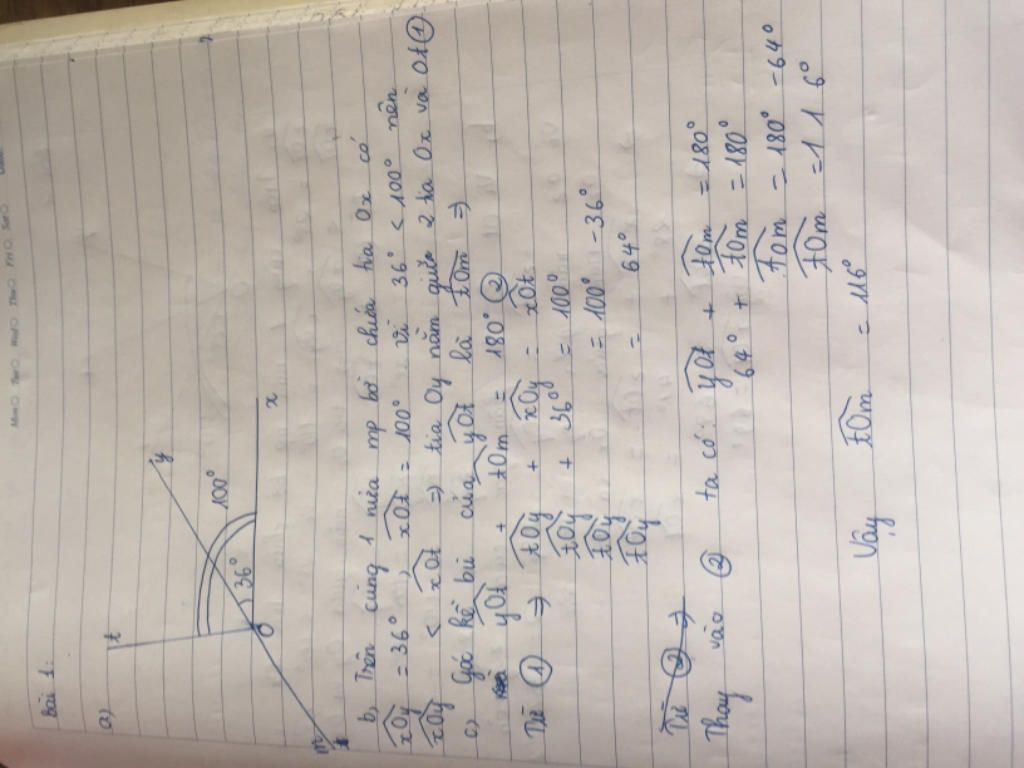 Bài 1:
a)
t
y
100°
36°
O
x
m
b, Trên cùng 1 nửa mp bờ chứa tia Ox có
xOy = 36°, xOt = 100° vì 36° < 100° nên
xOy < xOt => tia Oy nằm giữa 2 tia Ox và Ot ①
c, Góc kề bù của yOt là tOm =>
yOt + tOm = 180° ②
Từ ① => tOy + xOy = xOt
tOy + 36° = 100°
tOy = 100° - 36°
tOy = 64°
Từ ② =>
Thay vào ② ta có: yOt + tOm = 180°
64° + tOm = 180°
tOm = 180° - 64°
tOm = 11 6°
Vậy tOm = 116°